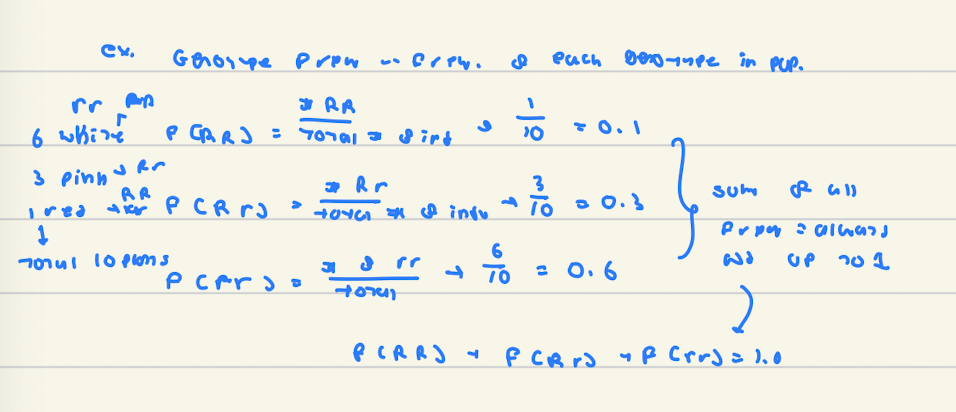 ex. Genotype freq -- freq. of each genotype in pop.
rr
6 white P(RR) = # RR / total # of ind → 1/10 = 0.1
3 pink → Rr
1 red → RR P(Rr) = # Rr / total # of indv → 3/10 = 0.3
↓
total 10 plants
P(rr) = # of rr / total → 6/10 = 0.6
sum of all
freq = always
add up to 1
P(RR) + P(Rr) + P(rr) = 1.0